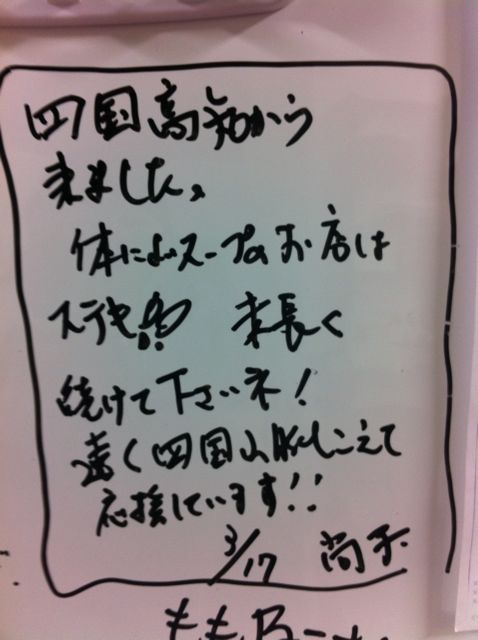 四国高知から
来ました。
体によいスープのお店は
ステキ!! 末長く
続けて下さいネ!
遠く四国山脈もこえて
応援しています!!
3/17 尚子